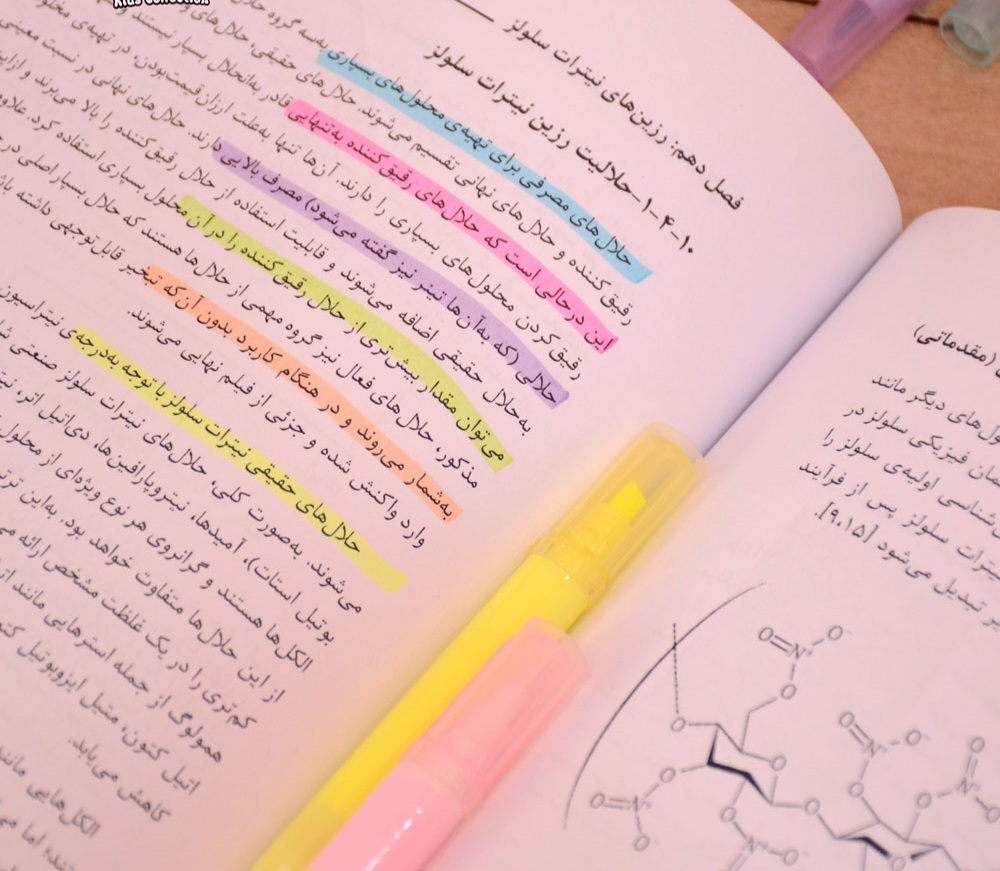 Kids Collection
فصل دهم: رزین‌های نیترات سلولز
۱۰-۴-۱-حلالیت رزین نیترات سلولز
حلال‌های مصرفی برای تهیه‌ی محلول‌های بسپاری به سه گروه حلال
رقیق کننده و حلال‌های نهائی تقسیم می‌شوند. حلال‌های حقیقی، حلال‌های
این در حالی است که حلال‌های رقیق‌کننده به‌تنهایی قادر به‌انحلال بسپار نیستند و
رقیق کردن محلول‌های بسپاری را دارند. آن‌ها تنها به‌علت ارزان قیمت‌بودن، در تهیه‌ی مخلوط
حلالی (که به‌آن‌ها تینر نیز گفته می‌شود) مصرف بالایی دارند. حلال‌های نهائی در نسبت معینی
به‌حلال حقیقی اضافه می‌شوند و قابلیت استفاده از حلال رقیق‌کننده را بالا می‌برند و
می‌توان مقدار بیش‌تری از حلال رقیق‌کننده را در آن محلول بسپاری استفاده کرد.
مذکور، حلال‌های فعال نیز گروه مهمی از حلال‌ها هستند که حلال بسپار اصلی در
به‌شمار می‌روند و در هنگام کاربرد بدون آن‌که تبخیر قابل‌توجهی داشته
وارد واکنش شده و جزئی از فیلم نهایی می‌شوند.
حلال‌های حقیقی نیترات سلولز با توجه به‌درجه‌ی نیتراسیون
می‌شوند. به‌صورت کلی، حلال‌های نیترات سلولز صنعتی
بوتیل استات)، آمیدها، نیتروپارافین‌ها، دی‌اتیل اتر،
الکل‌ها هستند و گرانروی هر نوع ویژه‌ای از محلول
از این حلال‌ها متفاوت خواهد بود. به‌این
کم‌تری را در یک غلظت مشخص ارائه
همولوگ از جمله استرهایی مانند
اتیل کتون، متیل ایزوبوتیل
کاهش می‌یابد.
الکل‌هایی مانند
اما
(مقدماتی)
های دیگر مانند
فیزیکی سلولز در
اولیه‌ی سلولز را
سلولز پس از فرآیند
تبدیل می‌شود [۹،۱۵].